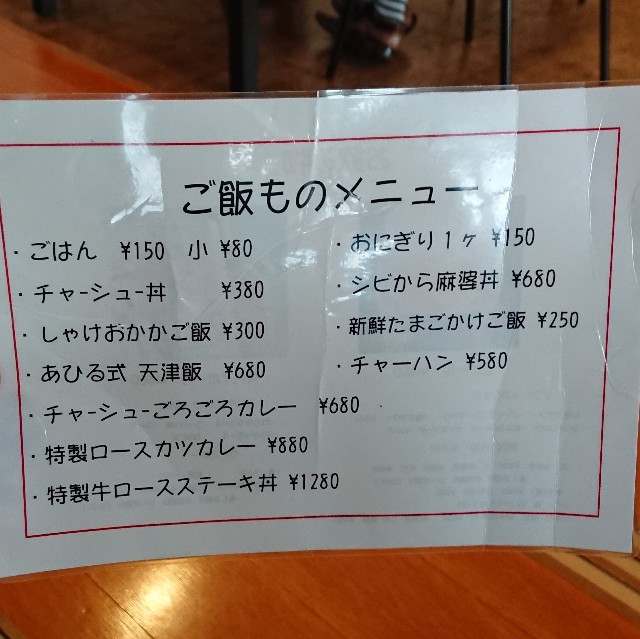 ご飯ものメニュー
・ごはん ¥150 小 ¥80
・チャーシュー丼 ¥380
・しゃけおかかご飯 ¥300
・あひる式 天津飯 ¥680
・チャーシューごろごろカレー ¥680
・特製ロースカツカレー ¥880
・特製牛ロースステーキ丼 ¥1280
・おにぎり1ヶ ¥150
・シビから麻婆丼 ¥680
・新鮮たまごかけご飯 ¥250
・チャーハン ¥580